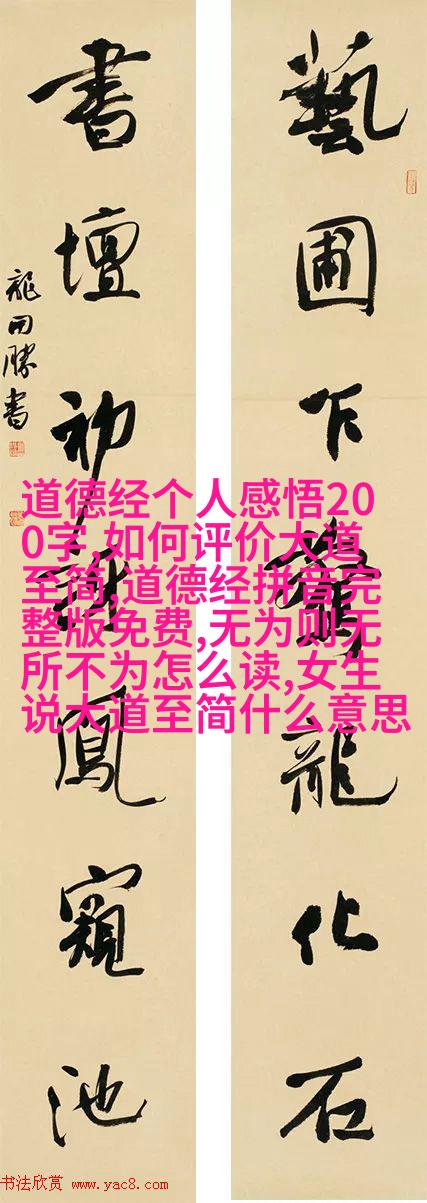 藝圃乍驚龍化石
書壇初鳳窺池
龍開勝書
道德经个人感悟20
0字,如何评价大道
至简,道德经拼音完
整版免费,无为则无
所不为怎么读,女生
说大道至简什么意思
书法欣赏 www.yac8.com